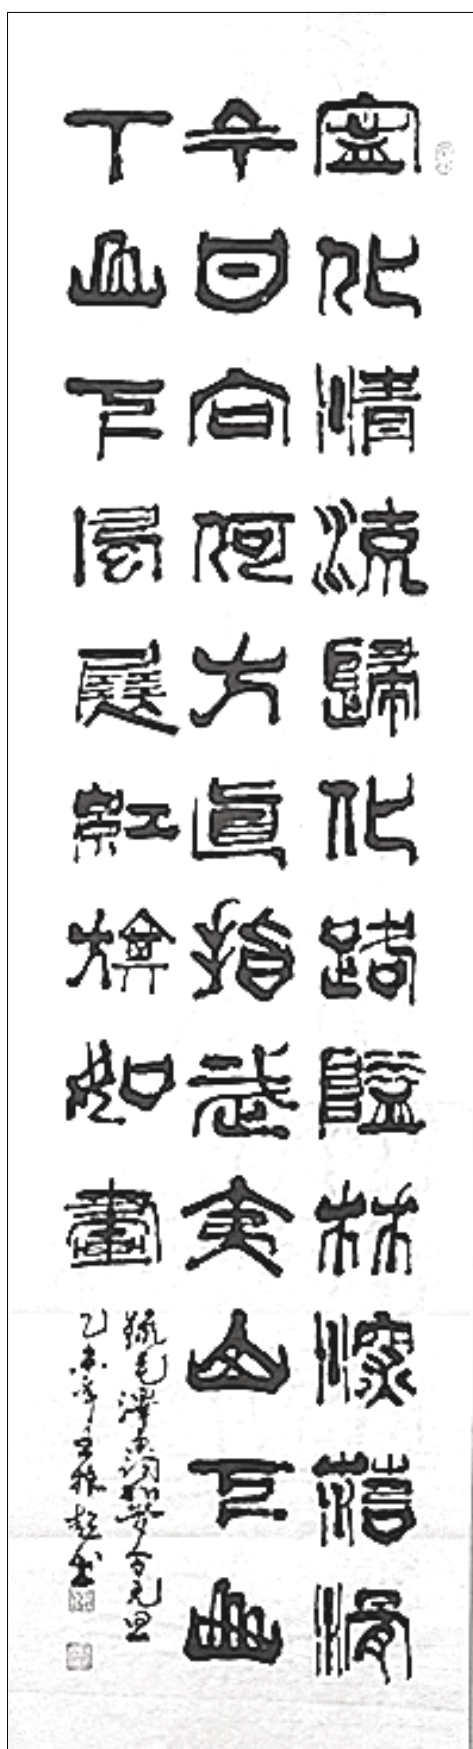 寧化清流歸化路隘林深苔滑
今日向何方直指武夷山下山
下山下風展紅旗如畫
錄毛澤東詞如夢令元旦
乙未年王振起書